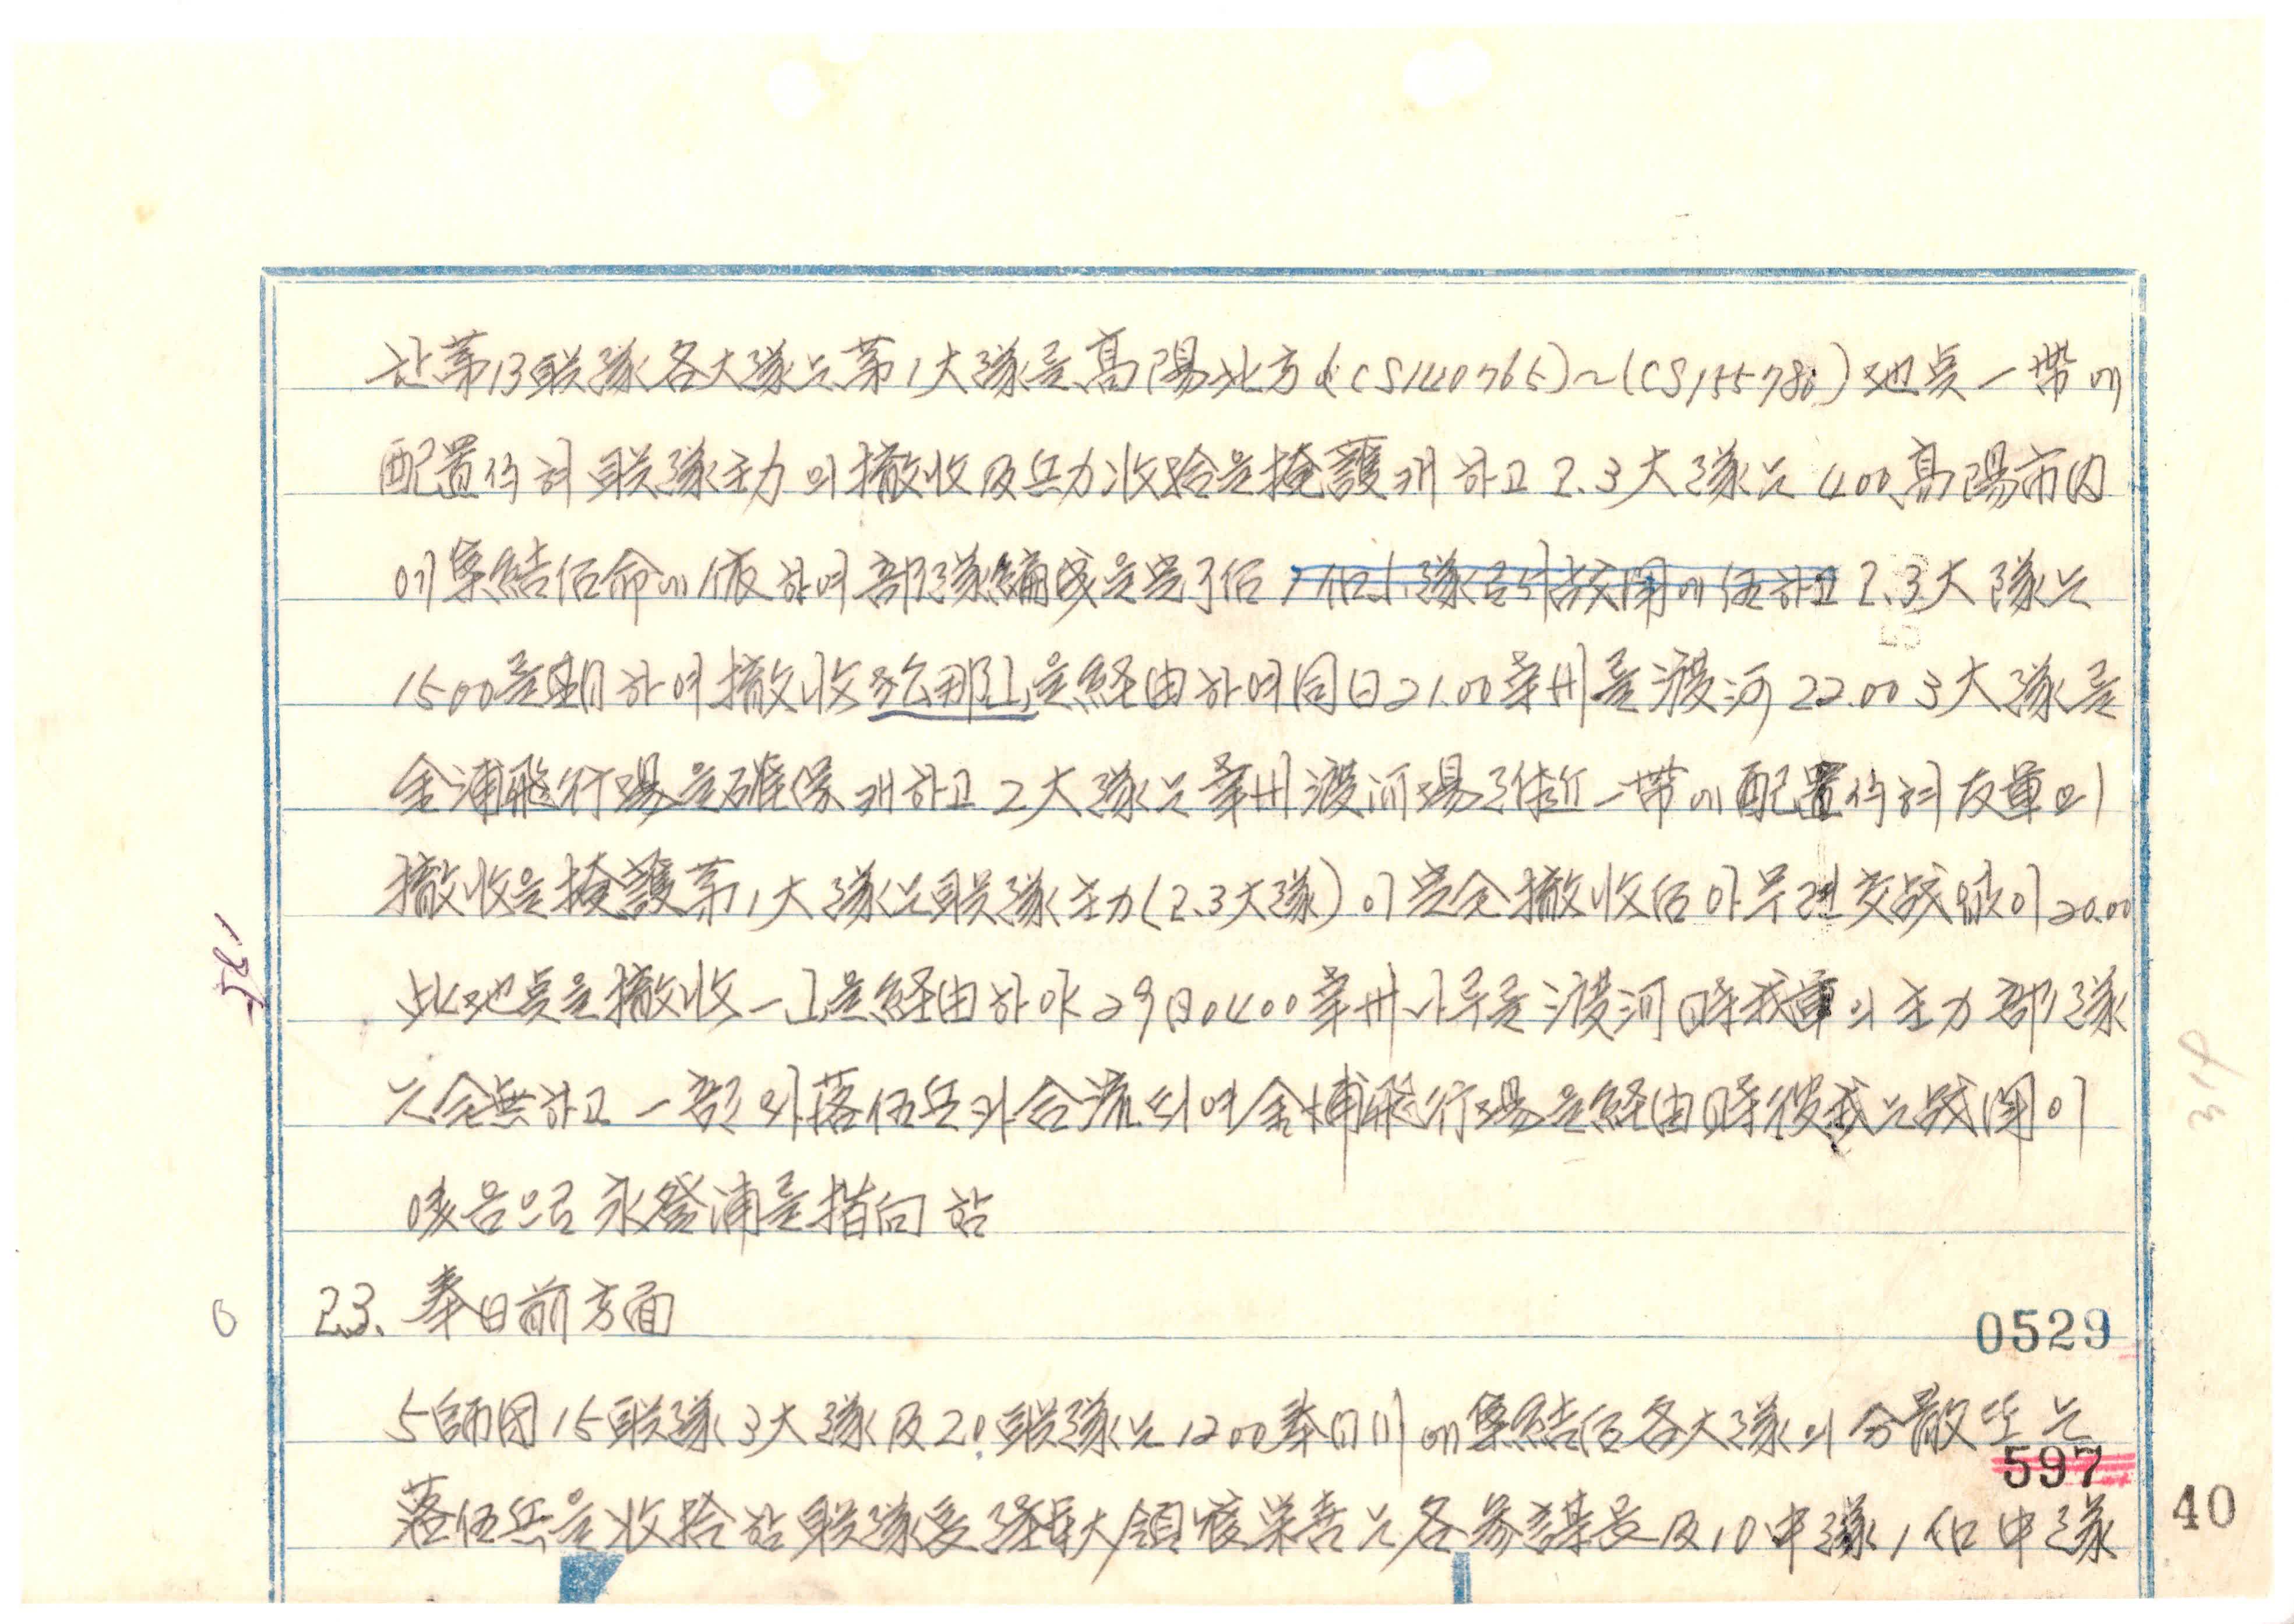 한 第13聯隊 各大隊는 第1大隊를 高陽北方 (CS140765)~(CS155780) 地点 一帶에
配置식혀 聯隊主力의 撤收及兵力收拾을 掩護케하고 2.3大隊는 400 高陽市内
에 集結后 命에 依하여 部隊編成을 完了后 1個小隊 戰鬪에 任하고 2.3大隊는
1500를 期하여 撤收 을 経由하여 同日 21.00 幸州를 渡河 22.00 3大隊를
金浦飛行場을 確保케하고 2大隊는 幸州渡河場附近 一帶에 配置식혀 友軍의
撤收을 掩護 第1大隊는 聯隊主力(2.3大隊)이 完全撤收后 아무런 交戰없이 20.00
此地点을 撤收 一山을 経由하야 29日0400 幸州나루를 渡河時 我軍의 主力部隊
는 全無하고 一部의 落伍兵과 合流되여 金浦飛行場을 経由時 彼我는 戰鬪이
였음으로 永登浦를 指向함
23. 奉日前方面
0529
5師団 15聯隊 3大隊及20聯隊는 1200 奉日川에 集結后 各大隊의 分散또는
597
落伍兵을 收拾함 聯隊長 大領 崔榮喜는 各参謀及10中隊 1個中隊
40
319
581